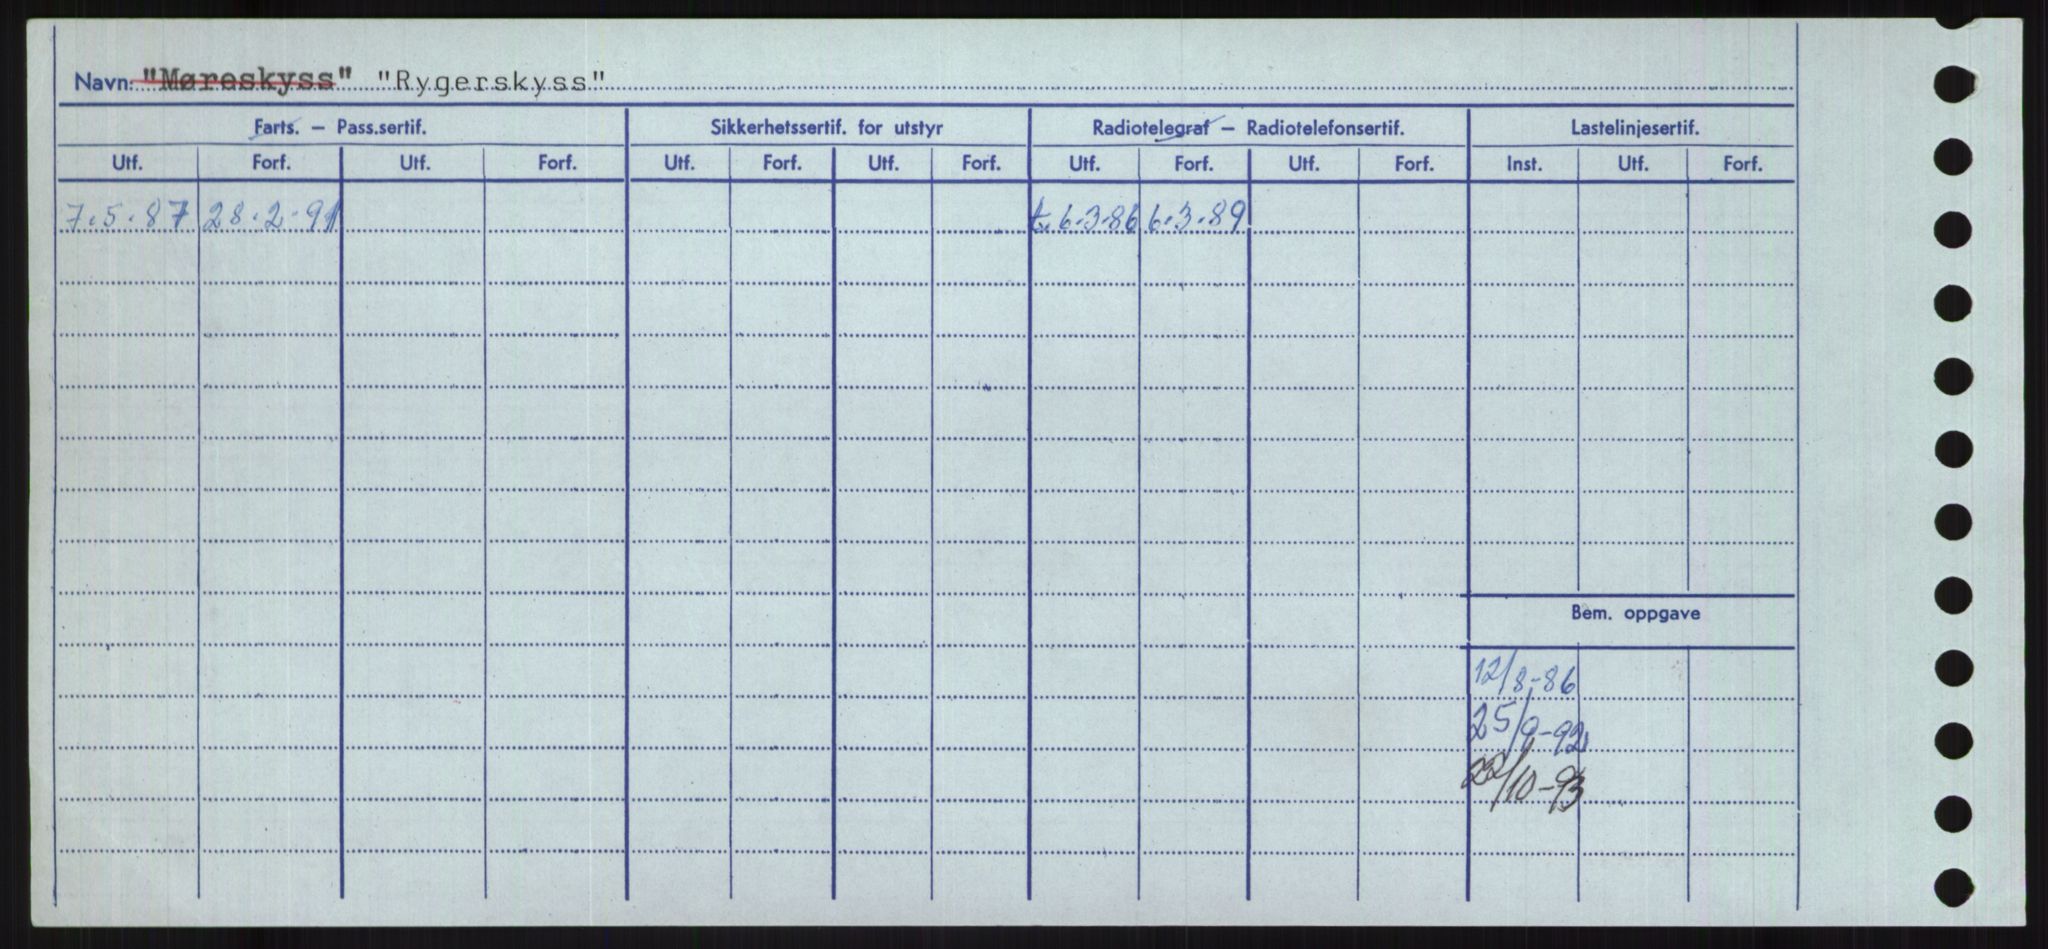 Navn: "Møreskyss" "Rygerskyss"
Farts. – Pass.sertif. Sikkerhetssertif. for utstyr Radiotelegraf – Radiotelefonsertif. Lastelinjesertif.
Utf. Forf. Utf. Forf. Utf. Forf. Utf. Forf. Utf. Forf. Utf. Forf. Inst. Utf. Forf.
7.5.87 28.2.91 t. 6.3.86 6.3.89
Bem. oppgave
12/8-86
25/9-92
22/10-93